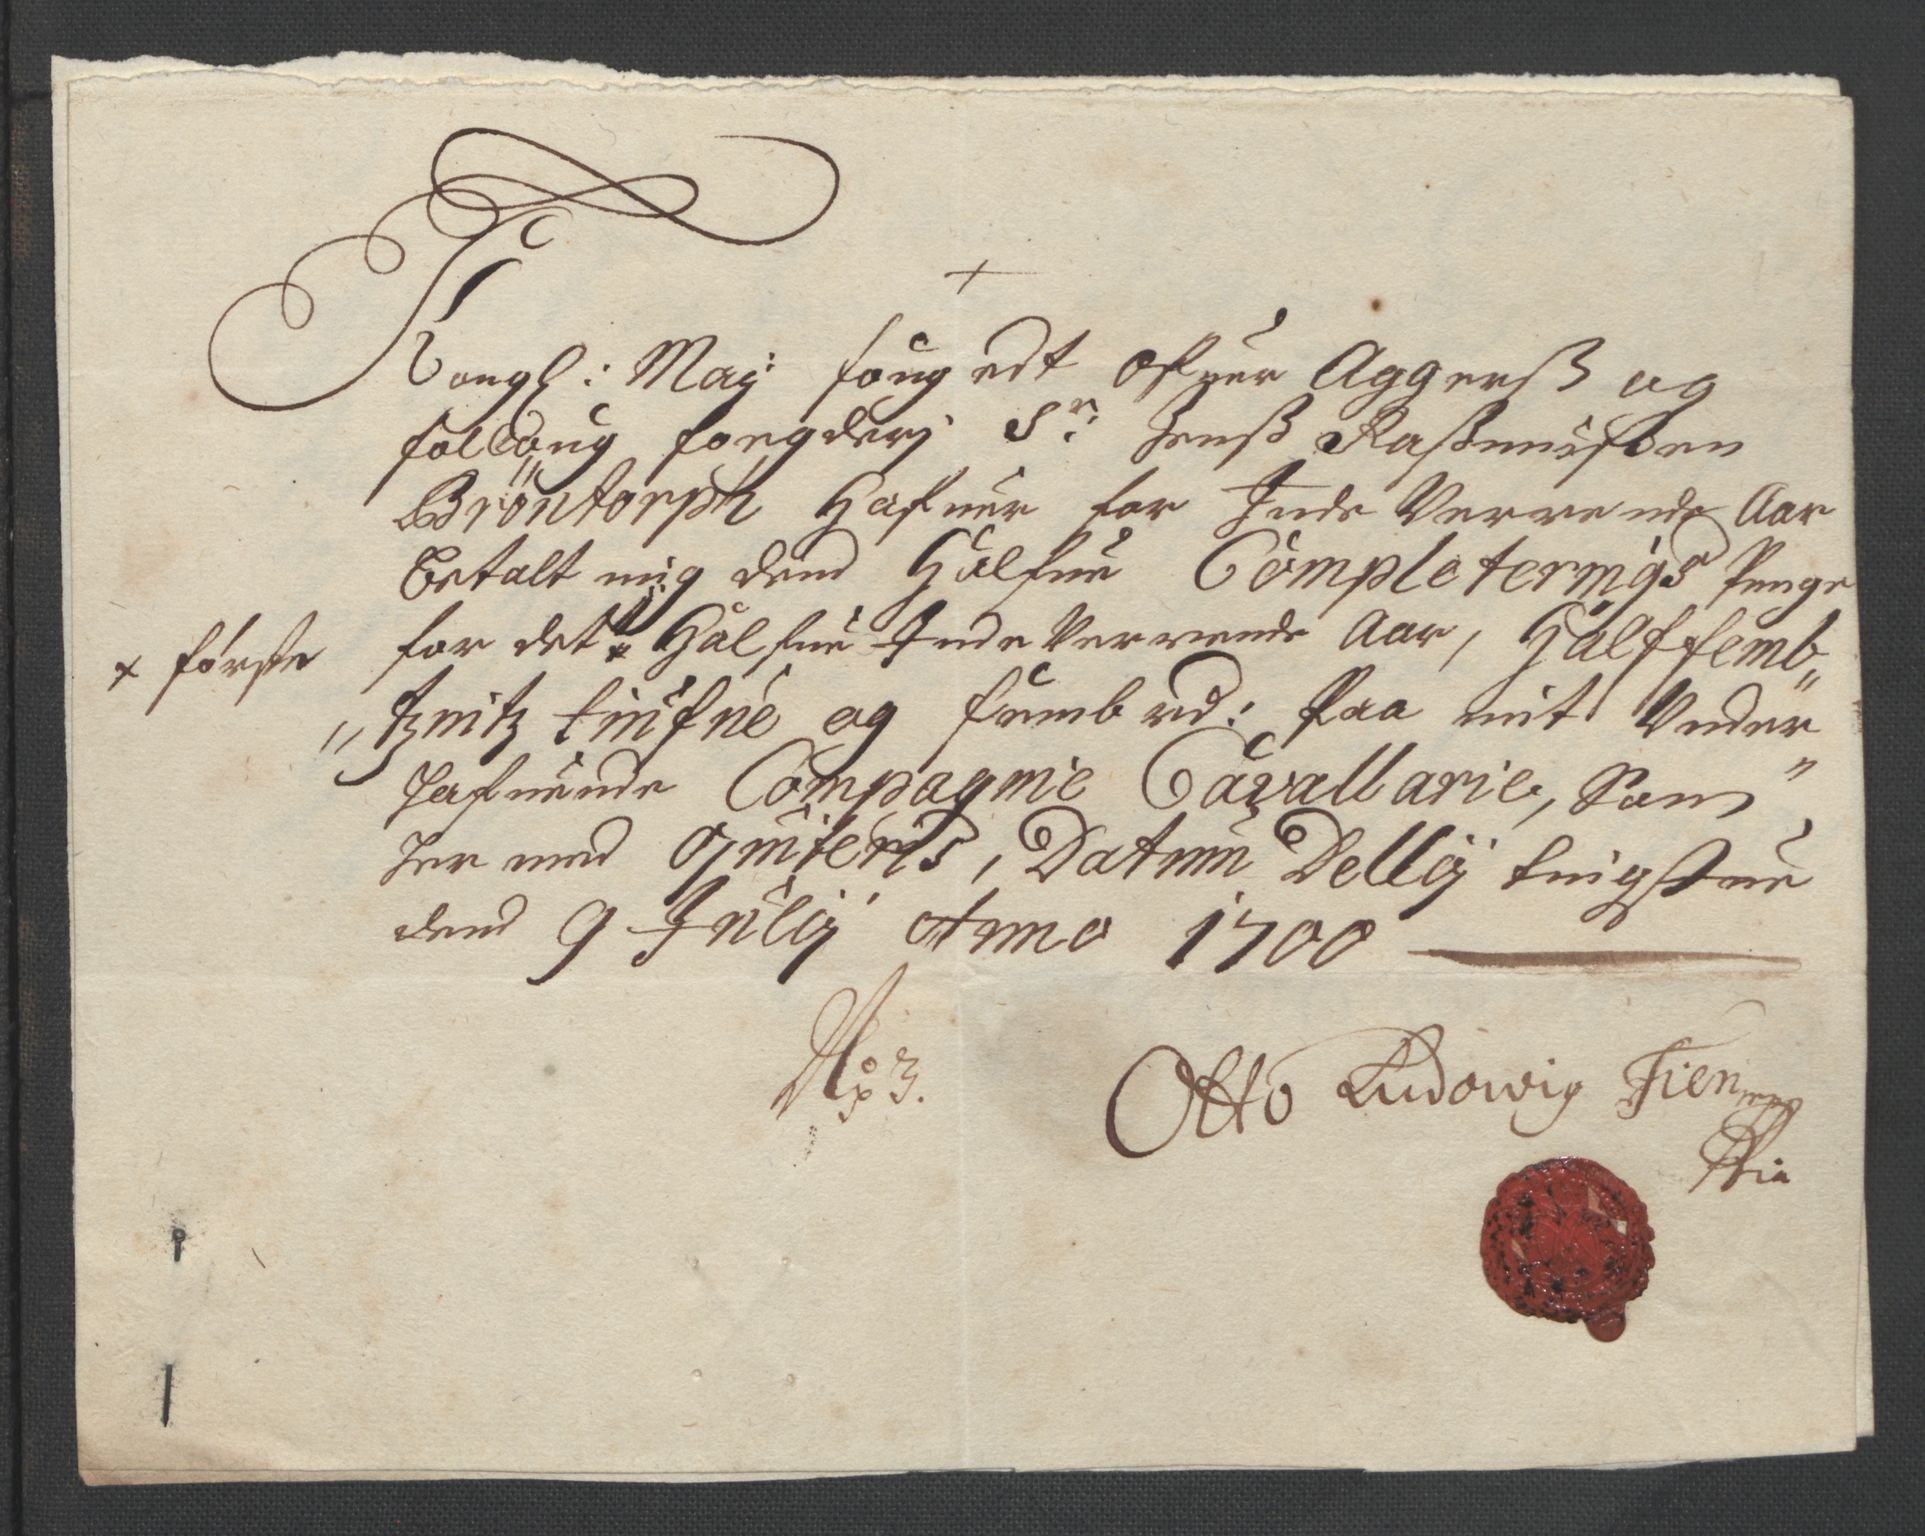 +
Kongl: May: fougedt Ofuer Aggerß og
folloug fougderj Sr: Jenß Raßmußen
Bröntorph Hafuer for Inde Verrende Aar
betalt mig dend Halfue Completerings Penge
+ første
for det + Halfue Inde Verrende Aar, Halffemb"
"tznitz tiufue og femb rd: Paa mit Vnder"
hafuende Compagnie Cavallarie, Som"
her med qviteris, Datum Dellij tingstue
dend 9 Julij Anno 1700
No 3.
Otto Ludowig